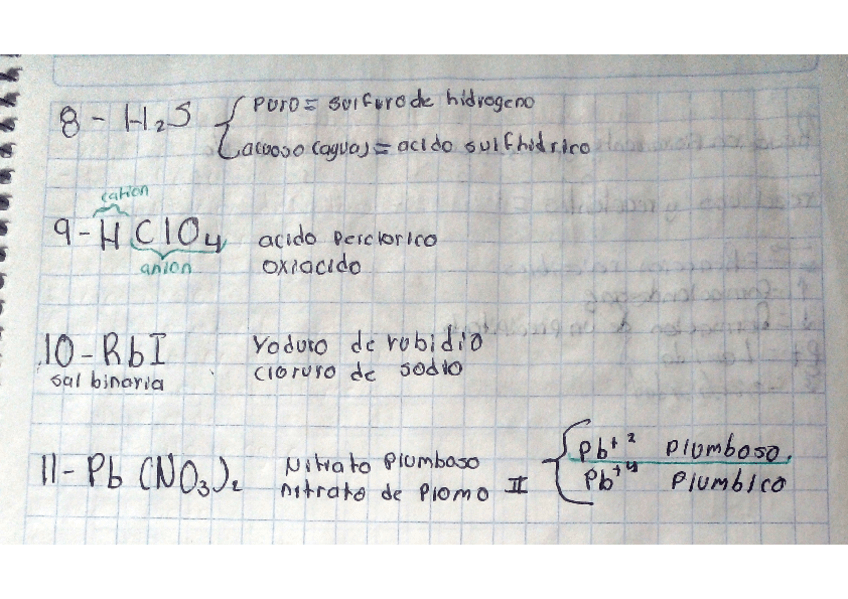 8 - H₂S { puro = sulfuro de hidrogeno
acuoso (agua) = acido sulfhidrico
cation
9 - HClO₄ acido perclorico
anion oxiacido
10 - RbI Yoduro de rubidio
sal binaria cloruro de sodio
Pb⁺² Plumboso.
11 - Pb (NO₃)₂ Nitrato Plumboso
nitrato de Plomo II { Pb⁺⁴ Plumbico